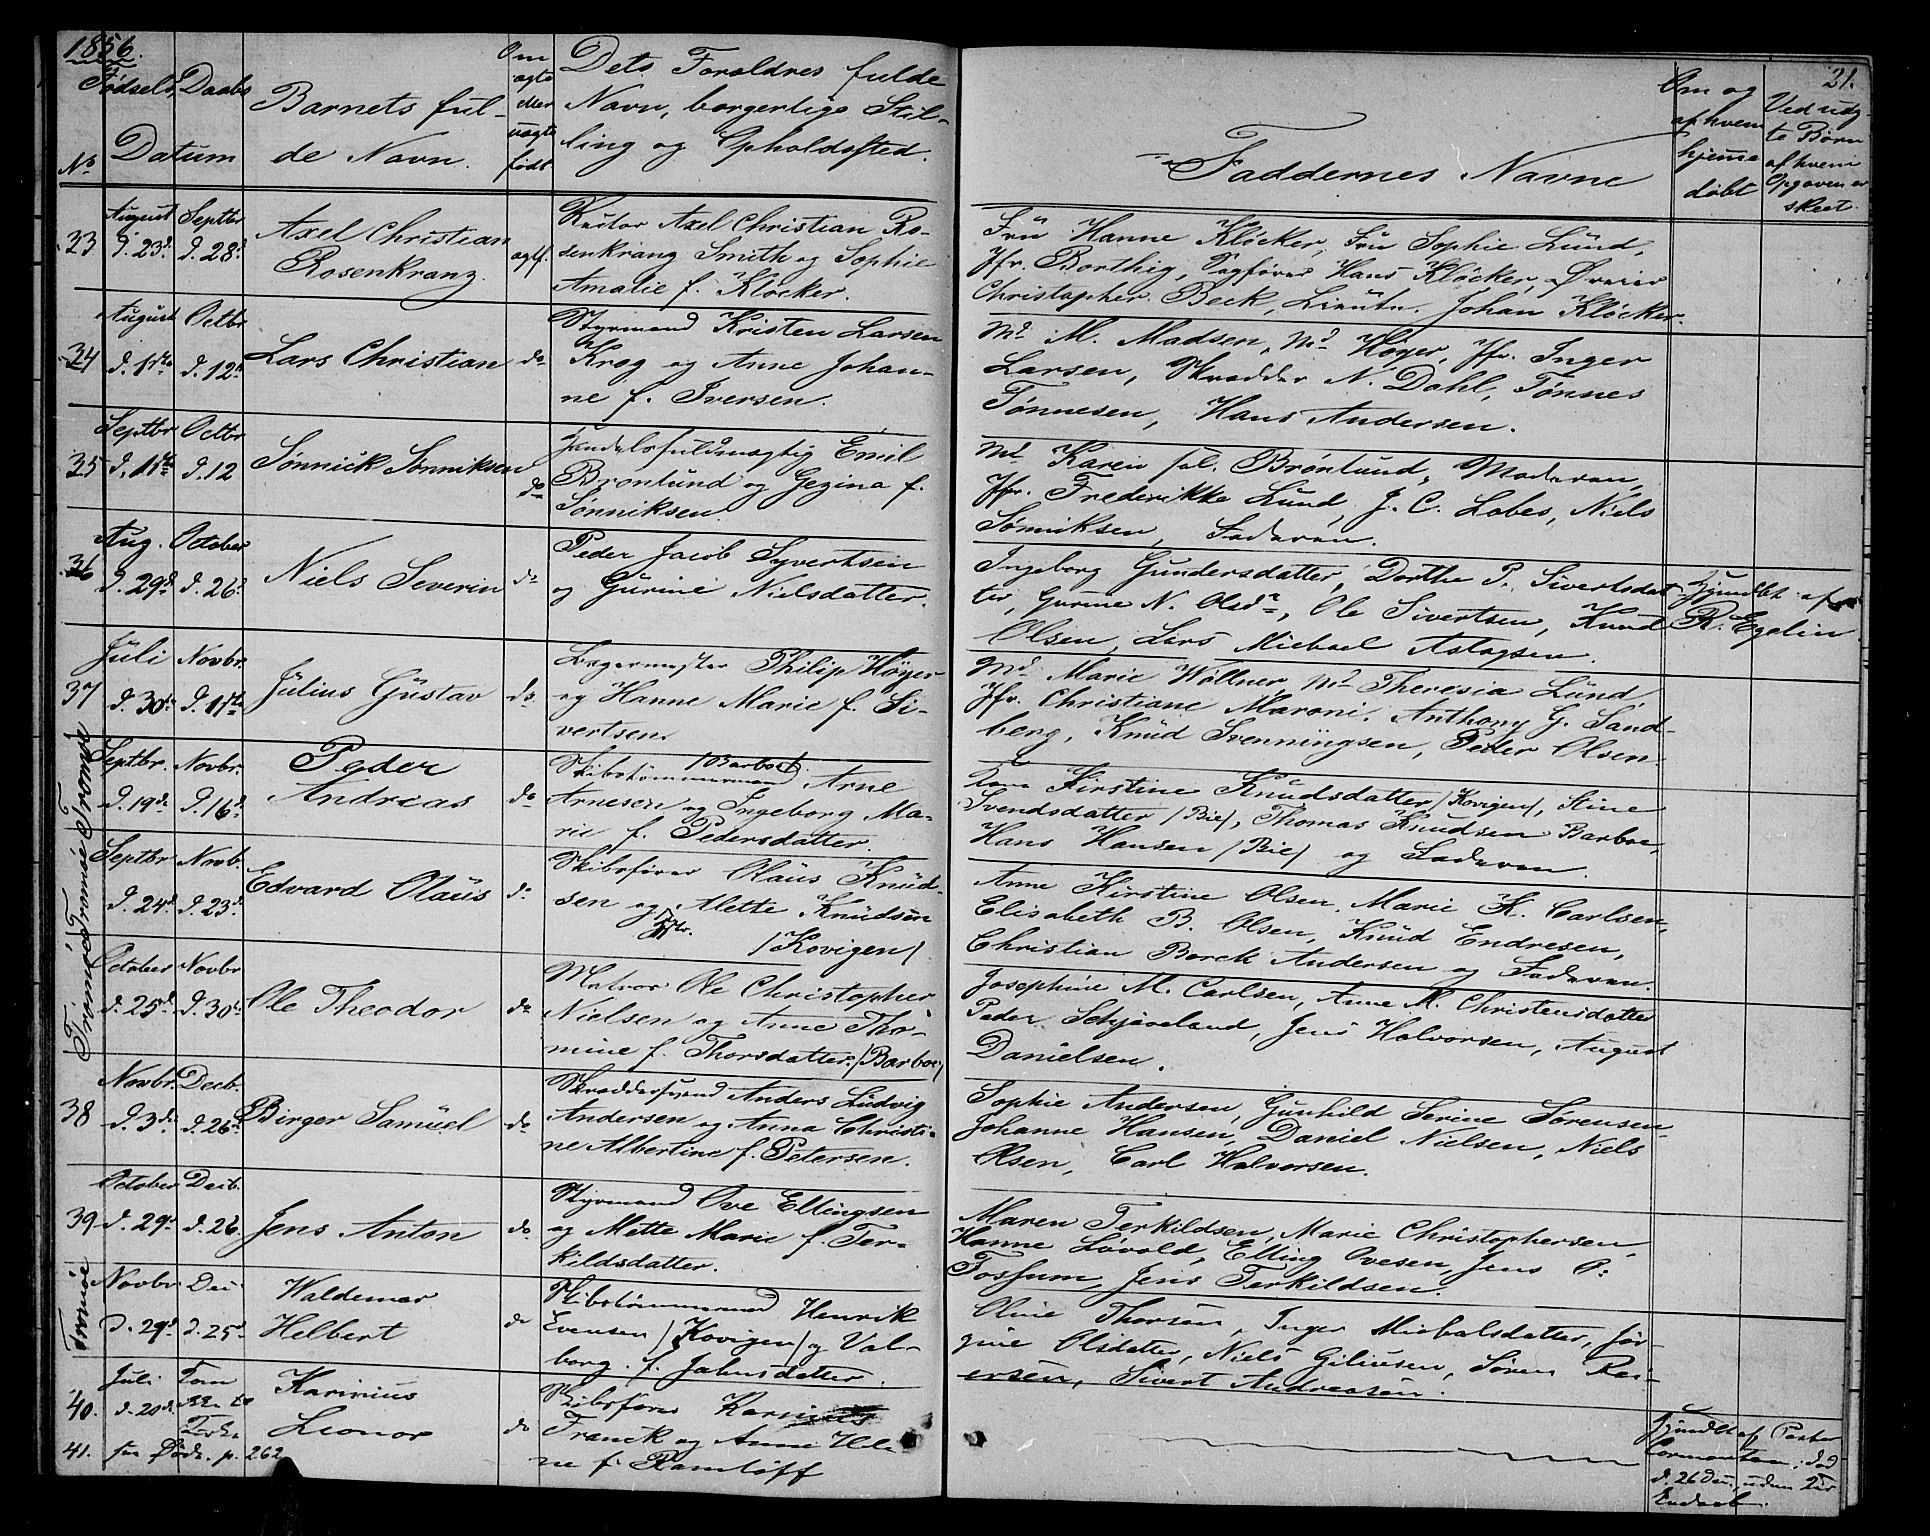 1856.
21.
No
Fødsels Daabs
Datum
Barnets ful-
de Navn.
Om
ægte
eller
uægte
født
Dets Forældres fulde
Navn, borgerlige Stil-
ling og Opholdssted.
Faddernes Navne
Om og
af hvem
hjemme
døbt
Ved uæg-
te Børn
af hvem
Opgaven er
skeet.
33
August Septbr
d. 23d d. 28d
Axel Christian
Rosenkranz.
ægtf.
Axel Christian Ro-
senkranz Smith og Sophie
Amalie f. Kløcker.
Fru Hanne Kløcker, Fru Sophie Lund,
Jfr. Borthig, Sagfører Hans Kløcker,
Christopher Beck, Lieutn. Johan Kløcker.
34
August Octbr
d. 1ste d. 12te
Lars Christian
do
Styrmand Kristen Larsen
Krog og Anne Johan-
ne f. Iversen.
Md. M. Madsen, Md Høyer, Jfr. Inger
Larsen, Skrædder N. Dahl, Tønnes
Tønnesen, Hans Andersen.
35
Septbr Octbr
d. 12
Sønnick Sønniksen
do
Handelsfuldmægtig Emil
Brønlund og Gezina f.
Sønniksen
Md. Karen sal. Brønlund, Moderen,
Jfr. Frederikke Lund, J. C. Lobes, Niels
Sønniksen, Faderen.
36
Aug. October
d. 29d d. 26d
Niels Severin
do
Peder Jacob Syvertsen
og Gurine Nielsdatter.
Ingeborg Gundersdatter, Dorthe P. Sivertsdat-
ter, Gurine N. Olsdr, Ole Sivertsen, Knud
Olsen, Lars Michael Aslagsen.
Hjmdbt af
R. Egelin
37
Juli Novbr.
d. 30te d. 1ste
Julius Gustav
do.
Philip Høyer
og Hanne Marie f. Si-
vertsen.
Md Marie Wöllner, Md Theresia Lund,
Jfr. Christiane Maroni, Anthony G. Sand-
berg, Knud Svenningsen, Peder Olsen.
Tromøe Tromøe Tromøe
Septbr. Novbr.
d. 19de d. 16de
Peder
Andreas
do
Skibstømmermand /Barboe/ Arne
Arnesen og Ingeborg Ma-
rie f. Pedersdatter.
Kirstine Knudsdatter /Kovigen/, Stine
Svendsdatter /Bie/, Thomas Knudsen Barboe,
Hans Hansen /Bie/ og Faderen.
Septbr Novb.
d. 24d. d. 23d.
Edvard Olaüs
do
Skibsfører Olaüs Knud-
sen og Alette Knudsen
/Kovigen/
Anne Kirstine Olsen, Marie K. Carlsen,
Elisabeth B. Olsen, Knud Endresen,
Christian Borck Andersen og Faderen.
October Novbr
d. 25d d. 30te
Ole Theodor
do
Matros Ole Christopher
Nielsen og Anne Thor-
mine f. Thorsdatter. /Barboe/
Josephine M. Carlsen, Anne M. Christensdatter
Peder Schjæveland, Jens Halvorsen, August
Danielsen.
38
Novbr. Decb.
d. 3die d. 26de
Birger Samuel
do
Skræddersvend Anders Ludvig
Andersen og Anna Christi-
ne Albertine f. Petersen.
Sophie Andersen, Gunhild Serine Sørensen
Johanne Hansen, Daniel Nielsen, Niels
Olsen, Carl Halvorsen.
39
October Decb.
d. 29d d. 26
Jens Anton
do
Styrmand Ove Ellingsen
og Mette Marie f. Ter-
kildsdatter.
Maren Terkildsen, Marie Christophersen,
Hanne Løvold, Elling Ovesen, Jens P:
Fossum, Jens Terkildsen.
Tromøe
Novbr
d. 29d d. 25d
Waldemar
Helbert
do
Skibstømmermand Henrik
Evensen /Kovigen/ og Val-
borg f. Jahnsdatter.
Oline Thorsen, Inger Michalsdatter, Jør-
gine Olsdatter, Niels Giliusen, Søren Rei-
ersen, Sivert Andreasen.
40.
Juli
d. 20de
Karinius
Leonor
do
Skibsfører Karinius
Franck og Anne Hele-
ne f. Ramløff
Hjmdbt af Pastor
død
d. 26 uden
41. see Døde p. 262